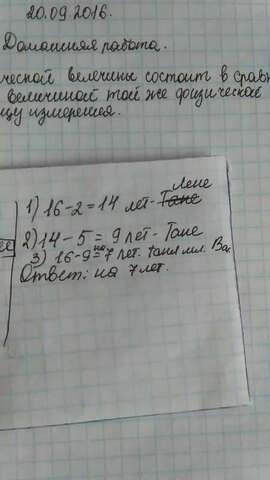 20.09.2016.
Домашняя работа.
ческой величины состоит в срав
величиной той же физической
цу измерения.
Лене
1) 16-2=14 лет- Тане
2) 14-5=9 лет- Тане
на
3) 16-9=7 лет. таня мл. Ва.
Ответ: на 7 лет.